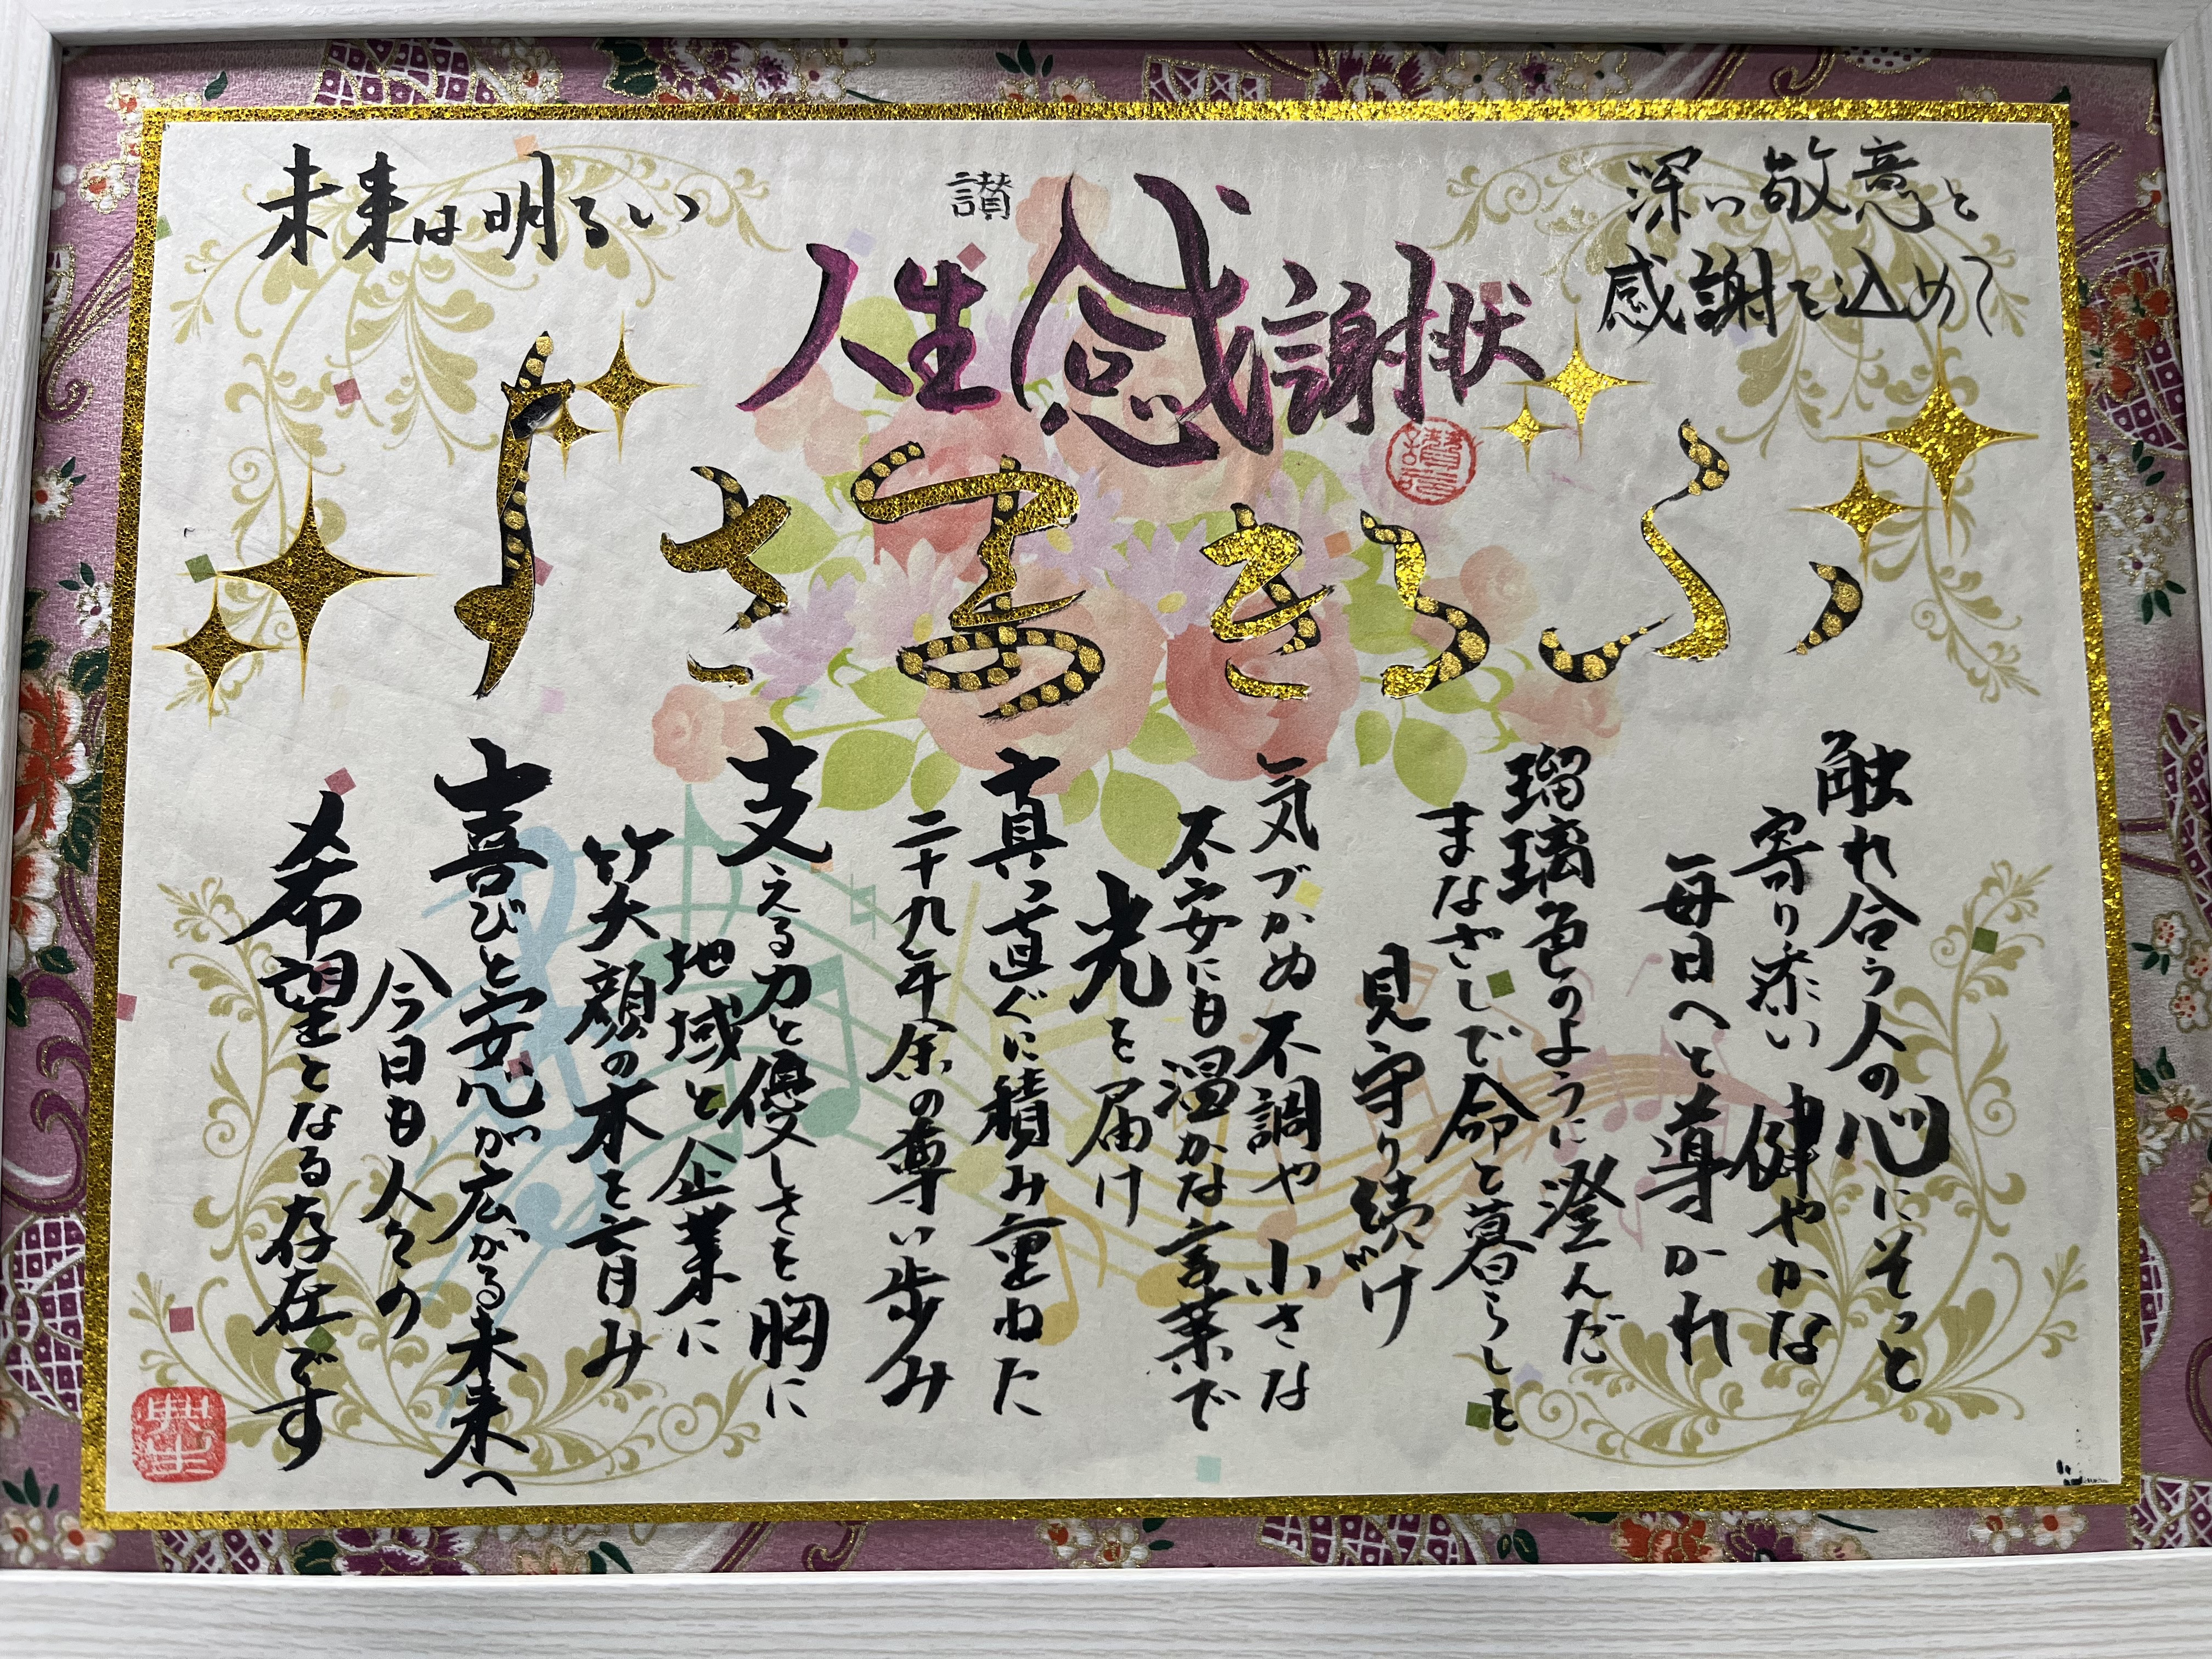 深い敬意と
感謝を込めて
讃
人生感謝状
未来は明るい
ふるきまさ
触れ合う人の心にそっと
寄り添い健やかな
毎日へと導かれ
瑠璃色のように澄んだ
まなざしで命と暮らしを
見守り続け
気づかぬ不調や小さな
不安にも温かな言葉で
光を届け
真っ直ぐに積み重ねた
二十九年余の尊い歩み
支える力と優しさを胸に
地域と企業に
笑顔の木を育み
喜びと安心が広がる未来へ
今日も人々の
希望となる存在です